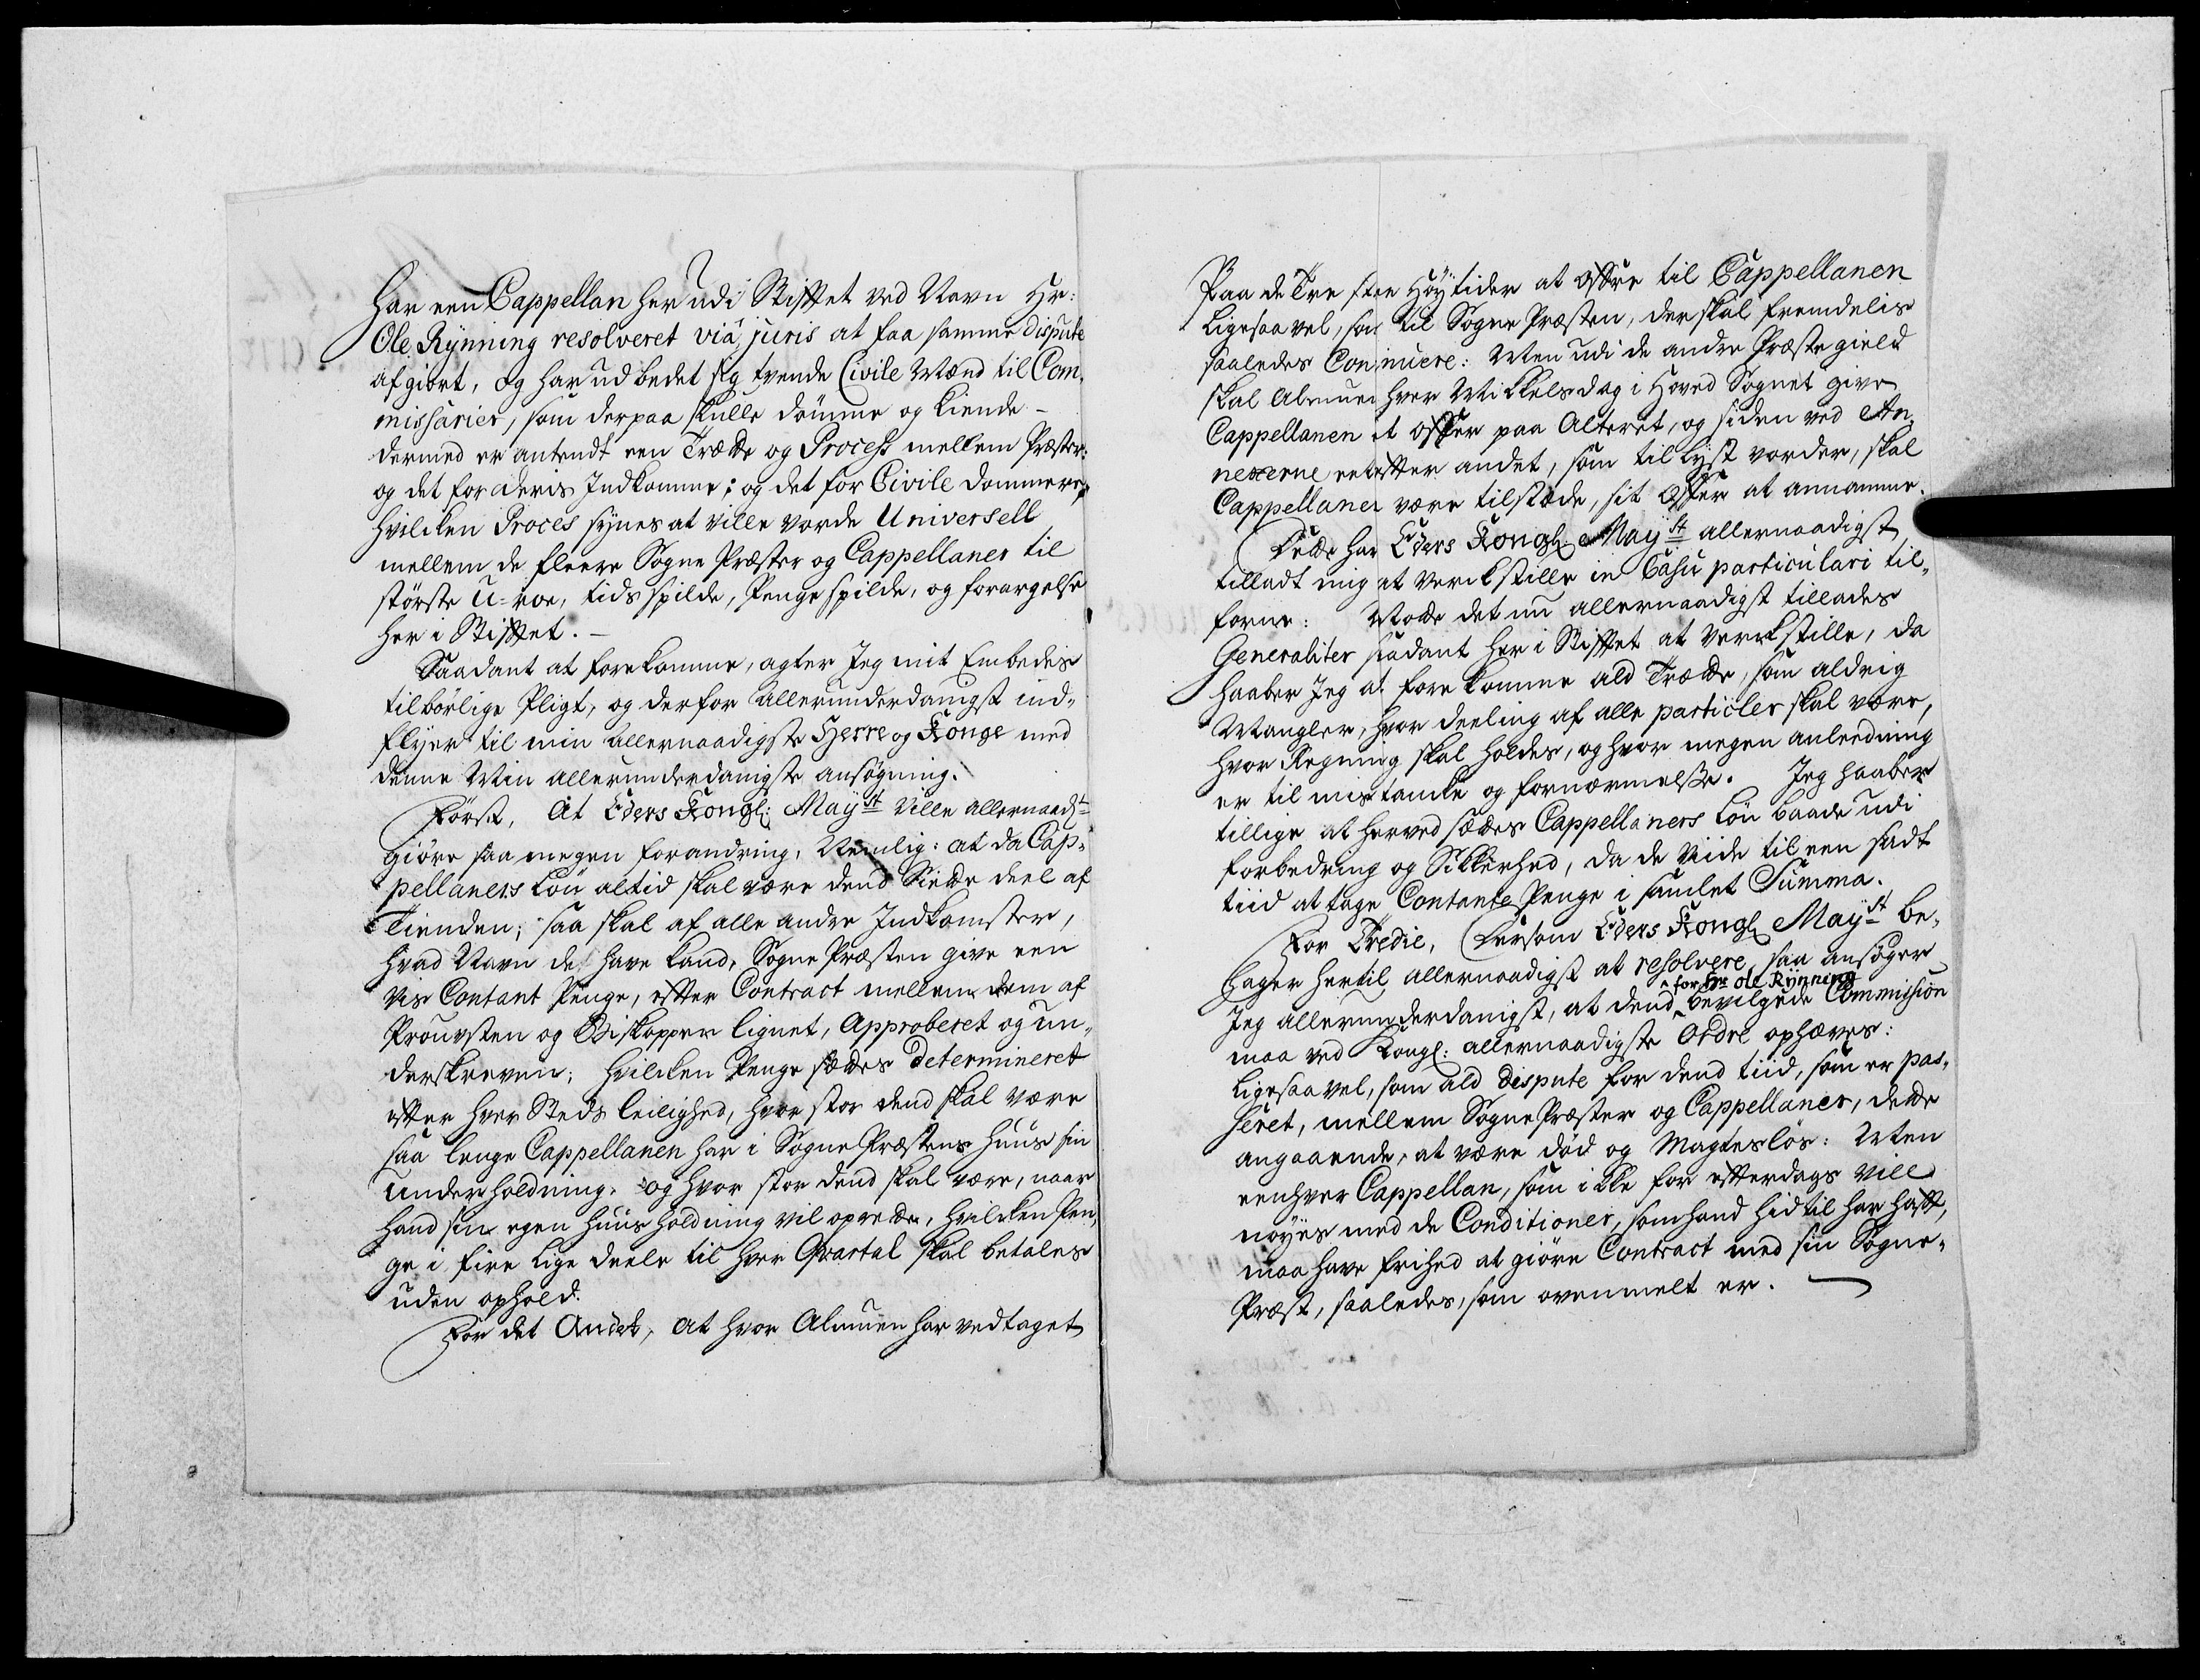 Har een Cappellan her udi Stiftet ved Navn Hr:
Ole Rynning resolveret via juris at faa samme dispute
afgiort, og har udbedet sig tvende Civile Mænd til Com-
missarier, som derpaa skulle dømme og kiende -
dermed er antendt een Trætte og Process mellem Præster,
og det for deris Indkomme; og det for Civile Dommere,
hvilcken Proces synes at ville vorde Universell
mellem de fleere Sogne Præster og Cappellaner til
største U-roe, tids spilde, Penge spilde, og forargelse
her i Stiftet. -
Saadant at forekomme, agter Jeg mit Embedes
tilbørlige Pligt, og derfor allerunderdanigst ind-
flyer til min allernaadigste Herre og Konge med
denne Min allerunderdanigste ansøgning.
Først, At Eders Kongl: Mayst ville allernaadst
giøre saa megen forandring, Nemlig: at da Cap-
pellaners Løn altid skal være dend Siette deel af
Tienden; saa skal af alle andre Indkomster,
hvad Navn de have kand, Sogne Præsten give een
vis Contant Penge, efter Contract mellem dem af
Prousten og Biskoppen lignet, Approberet og un-
derskreven; hvilcken Penge sættes determineret
efter hver Steds leilighed, hvor stor dend skal være
saa lenge Cappellanen har i Sogne Præstens Huus sin
Underholdning, og hvor stor dend skal være, naar
hand sin egen Huusholdning vil oprette, hvilcken Pen-
ge i fire lige deele til hver Qvartal skal betales
uden ophold.
For det Andet, At hvor Almuen har vedtaget
Paa de Tre store Høytider at offre til Cappellanen
ligesaavel, som til Sogne Præsten, der skal fremdelis
saaledes Continuere: Men udi de andre Præstegield
skal Almuen hver Mikkelsdag i Hoved Sognet give
Cappellanen et Offer paa Alteret, og siden ved An-
nexerne eet efter andet, som tillyst vorder, skal
Cappellanen være tilstæde, sit Offer at annamme.
Dette har Eders Kongl: Mayst allernaadigst
tilladt mig at verckstille in Casu particulari til-
forne: Motte det nu allernaadigst tillades
Generaliter saadant her i Stiftet at verckstille, da
haaber Jeg at forekomme ald Trætte, som aldrig
Mangler, hvor deeling af alle particler skal være,
hvor Regning skal holdes, og hvor megen anleedning
er til mistancke og fornærmelse. Jeg haaber
tillige at herved sættes Cappellaners Løn baade udi
forbedring og Sikkerhed, da de viide til een sadt
tiid at tage Contante Penge i samlet Summa.
For Tredie, Dersom Eders Kongl Mayst be-
hager hertil allernaadigst at resolvere, saa ansøger
^ for Hr Ole Rynning
Jeg allerunderdanigst, at dend ^ bevilgede Commission
maa ved Kongl: allernaadigste Ordre ophæves:
ligesaavel, som ald dispute for dend tiid, som er pas-
seret, mellem Sogne Præster og Cappellaner, dette
angaaende, at være død og Magtesløs: Men
eenhver Cappellan, som ikke for efterdags vill
nøyes med de Conditioner, som hand hidtil har haft,
maa have frihed at giøre Contract med sin Sogne-
Præst, saaledes, som ovenmelt er.